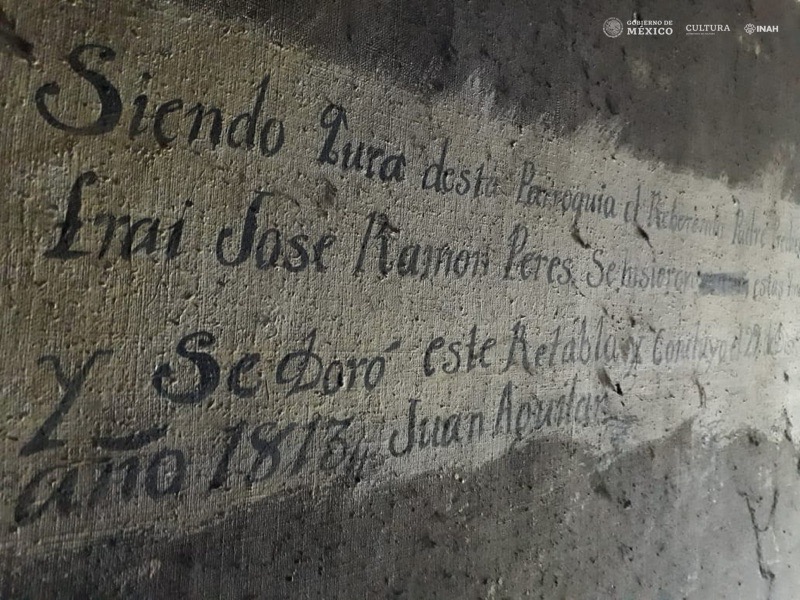 GOBIERNO DE
MÉXICO
CULTURA
INAH
Siendo Qura desta Parroquia el Reberendo Padre
frai Jose Ramon Peres Se hisieron estas
y Se Doró este Retabla y Concluyo el 29 de
año 1813 Juan Aguilar